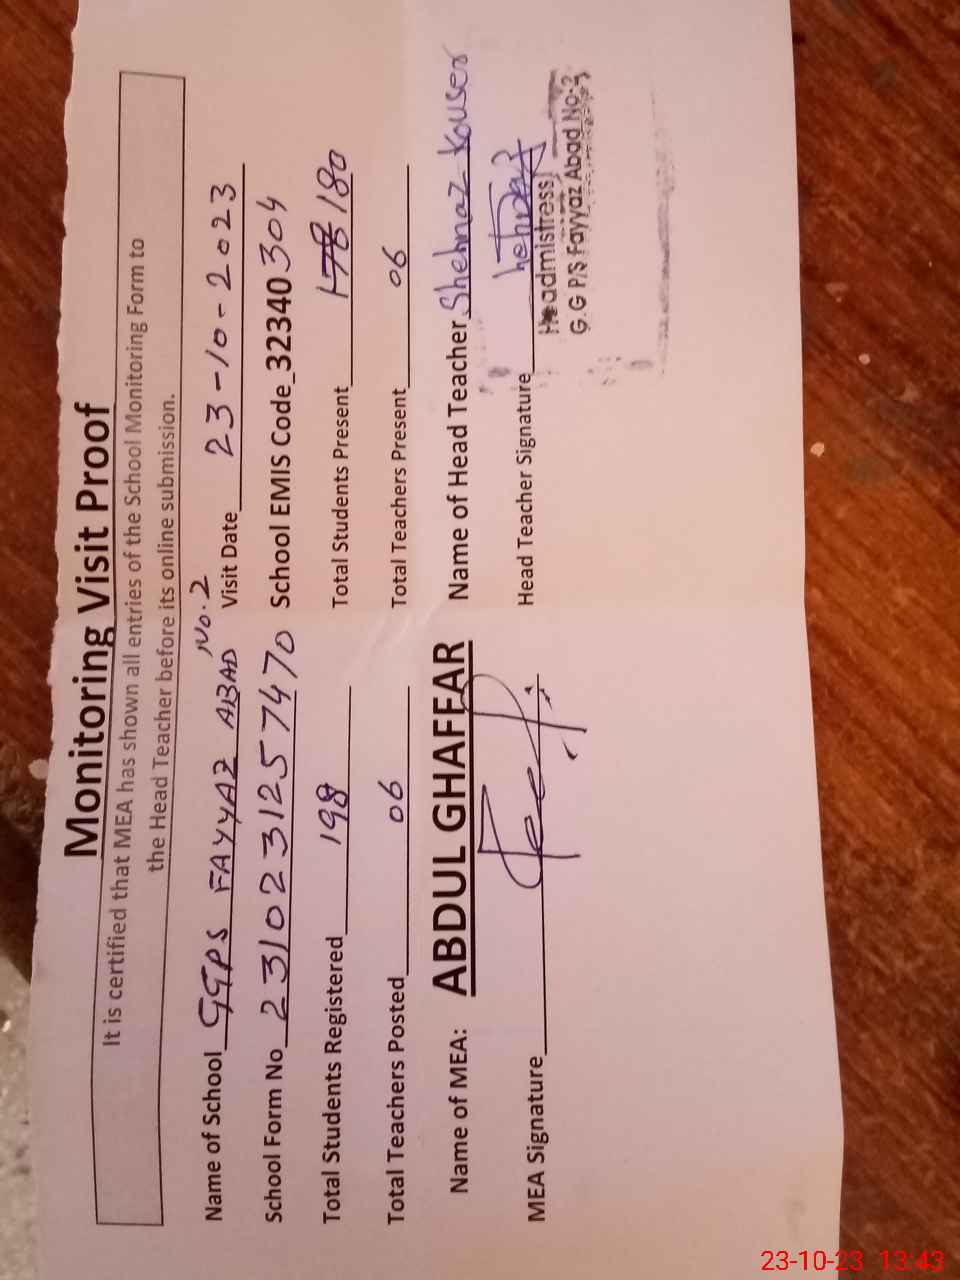 Monitoring Visit Proof
It is certified that MEA has shown all entries of the School Monitoring Form to
the Head Teacher before its online submission.
Name of School GGPS FAYYAZ ABAD No.2 Visit Date 23-10-2023
School Form No 2310231257470 School EMIS Code 32340304
Total Students Registered 198 Total Students Present 178 180
Total Teachers Posted 06 Total Teachers Present 06
Name of MEA: ABDUL GHAFFAR Name of Head Teacher Shehnaz Kouser
MEA Signature Head Teacher Signature
Headmistress
G.G P/S Fayyaz Abad No.2
23-10-23 13:43